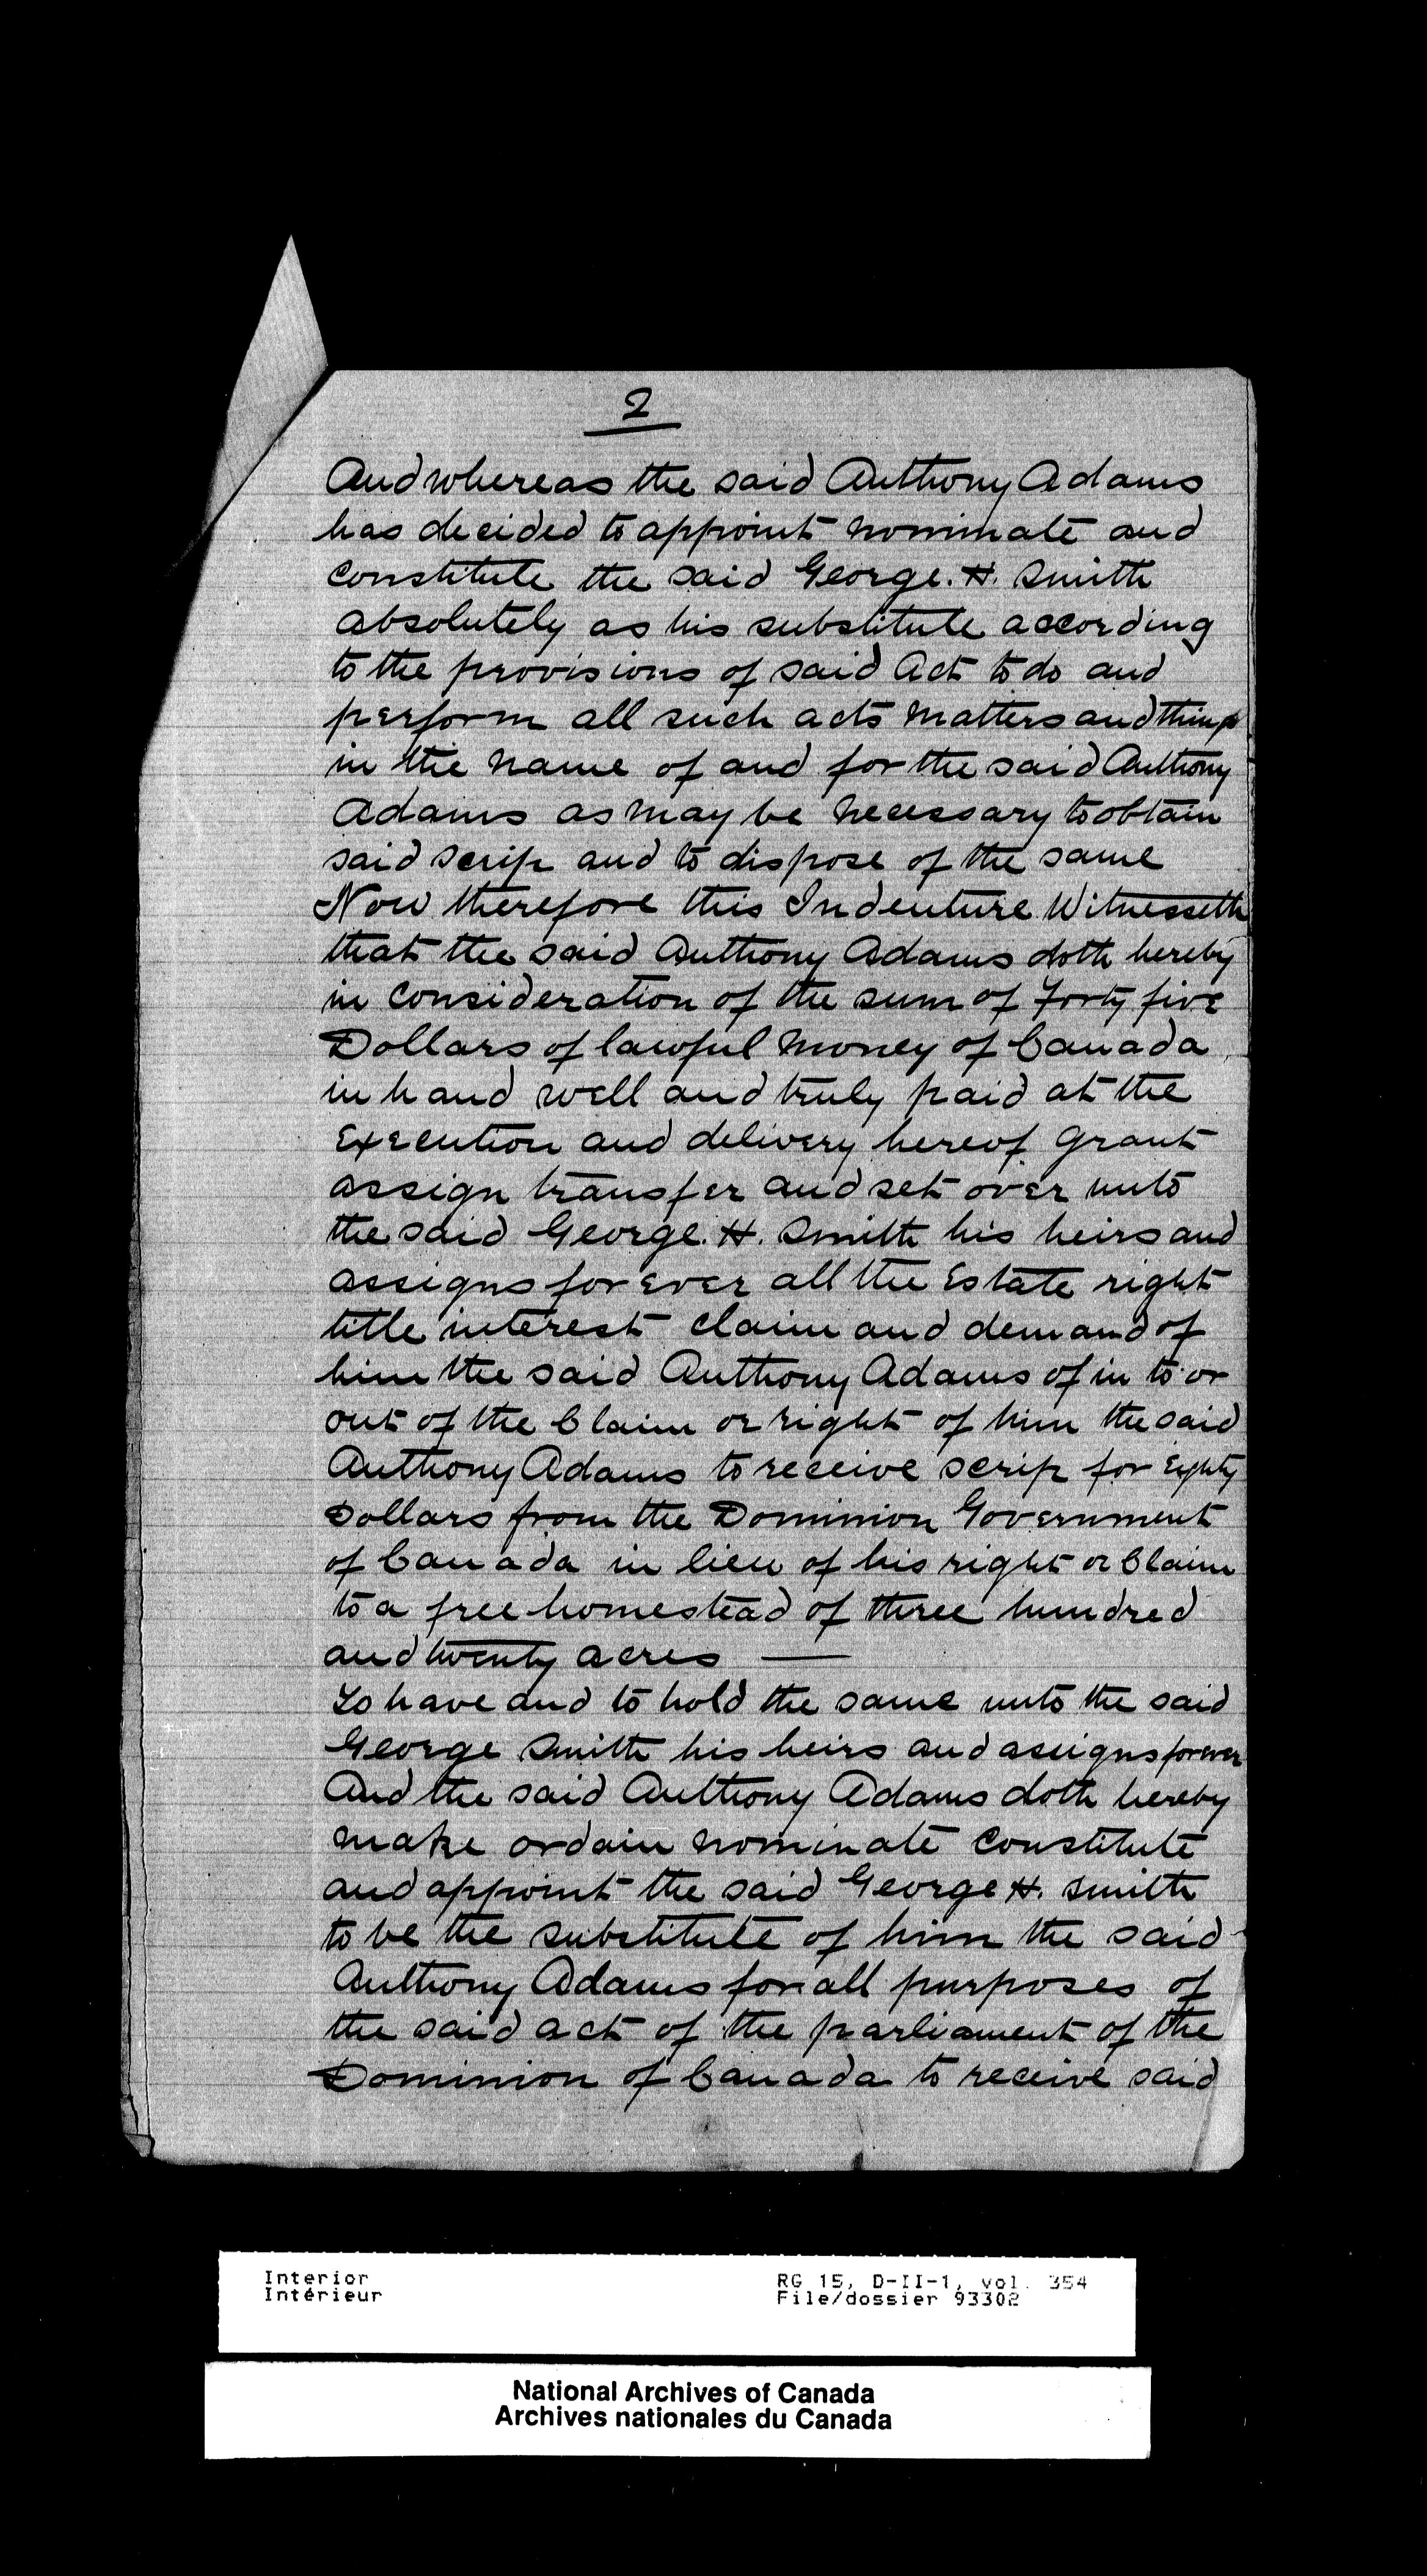 2
And whereas the said Anthony Adams
has decided to appoint nominate and
constitute the said George. H. Smith
absolutely as his substitute according
to the provisions of said Act to do and
perform all such acts matters and things
in the name of and for the said Anthony
Adams as may be necessary to obtain
said scrip and to dispose of the same
Now therefore this Indenture Witnesseth
that the said Anthony Adams doth hereby
in consideration of the sum of Forty five
Dollars of lawful money of Canada
in hand well and truly paid at the
Execution and delivery hereof grant
assign transfer and set over unto
the said George. H. Smith his heirs and
assigns for ever all the Estate right
title interest claim and demand of
him the said Anthony Adams of in to or
out of the Claim or right of him the said
Anthony Adams to receive scrip for Eighty
Dollars from the Dominion Government
of Canada in lieu of his right or Claim
to a free homestead of three hundred
and twenty acres —
To have and to hold the same unto the said
George Smith his heirs and assigns forever
And the said Anthony Adams doth hereby
make ordain nominate constitute
and appoint the said George H. Smith
to be the substitute of him the said
Anthony Adams for all purposes of
the said act of the parliament of the
Dominion of Canada to receive said
Interior
Intérieur
RG 15, D-II-1, vol. 354
File/dossier 93302
National Archives of Canada
Archives nationales du Canada